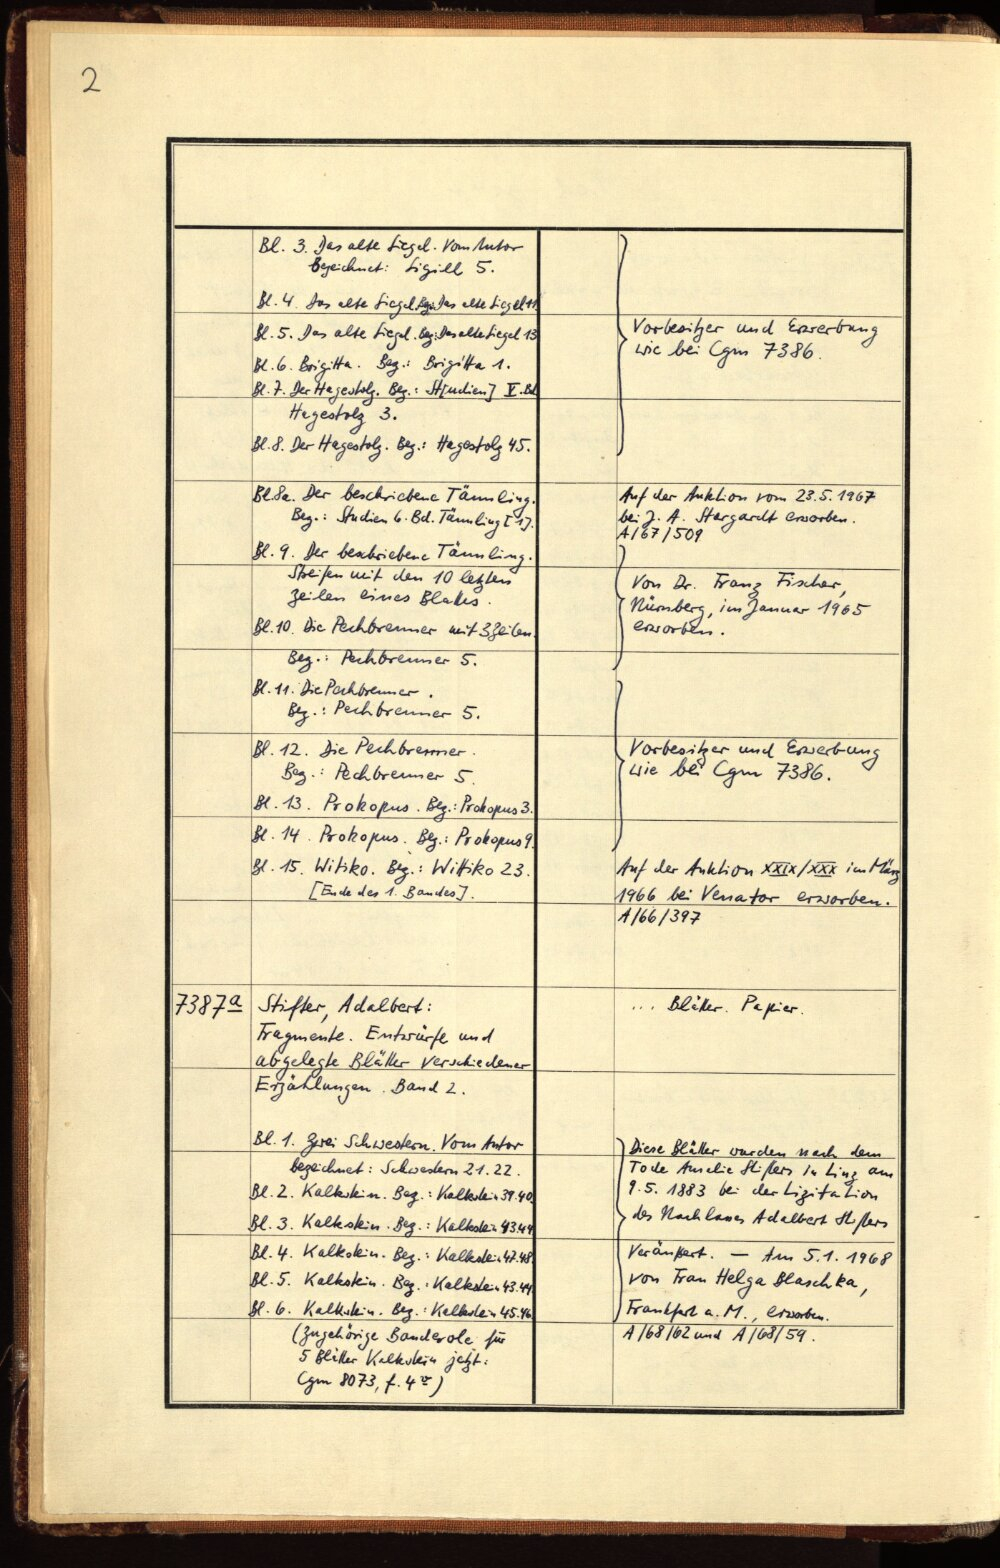 2
Bl. 3. Das alte Siegel. Vom Autor
bezeichnet: Sigill 5.
Bl. 4. Das alte Siegel. Bez.: Das alte Siegel 11
Bl. 5. Das alte Siegel. Bez.: Das alte Siegel 13
Vorbesitzer und Erwerbung
wie bei Cgm 7386.
Bl. 6. Brigitta. Bez.: Brigitta 1.
Bl. 7. Der Hagestolz. Bez.: St[udien] V. Bd.
Hagestolz 3.
Bl. 8. Der Hagestolz. Bez.: Hagestolz 45.
Bl. 8a. Der beschriebene Tännling.
Bez.: Studien 6. Bd. Tännling [1].
Auf der Auktion vom 23.5.1967
bei J. A. Stargardt erworben.
A/67/509
Bl. 9. Der beschriebene Tännling.
Streifen mit den 10 letzten
Zeilen eines Blattes.
Von Dr. Franz Fischer,
Nürnberg, im Januar 1965
erworben.
Bl. 10. Die Pechbrenner mit 3 Zeilen.
Bez.: Pechbrenner 5.
Bl. 11. Die Pechbrenner.
Bez.: Pechbrenner 5.
Bl. 12. Die Pechbrenner.
Bez.: Pechbrenner 5
Vorbesitzer und Erwerbung
wie bei Cgm 7386.
Bl. 13. Prokopus. Bez.: Prokopus 3.
Bl. 14 Prokopus. Bez.: Prokopus 9.
Bl. 15. Witiko. Bez.: Wittiko 23.
[Ende des 1. Bandes].
Auf der Auktion XXIX/XXX im März
1966 bei Venator erworben.
A/66/397
7387a Stifter, Adalbert:
Fragmente. Entwürfe und
abgelegte Blätter verschiedener
Erzählungen. Band 2.
... Blätter. Papier.
Bl. 1. Zwei Schwestern. Vom Autor
bezeichnet: Schwestern 21.22.
Bl. 2. Kalkstein. Bez.: Kalkstein 39.40
Bl. 3. Kalkstein. Bez.: Kalkstein 43.44
Bl. 4. Kalkstein. Bez.: Kalkstein 47.48.
Bl. 5. Kalkstein. Bez.: Kalkstein 43.44
Bl. 6. Kalkstein. Bez.: Kalkstein 45.46
(Zugehörige Banderole für
5 Blätter Kalkstein jetzt:
Cgm 8073, f. 4v)
Diese Blätter wurden nach dem
Tode Amalie Stifters in Linz am
9.5.1883 bei der Lizitation
des Nachlasses Adalbert Stifters
veräußert. — Am 5.1.1968
von Frau Helga Blaschka,
Frankfurt a. M., erworben.
A/68/62 und A/68/59.